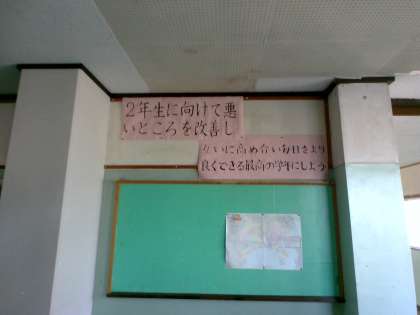 2年生に向けて悪
いところを改善し
互いに高め合い毎日をより
良くできる最高の学年にしよう